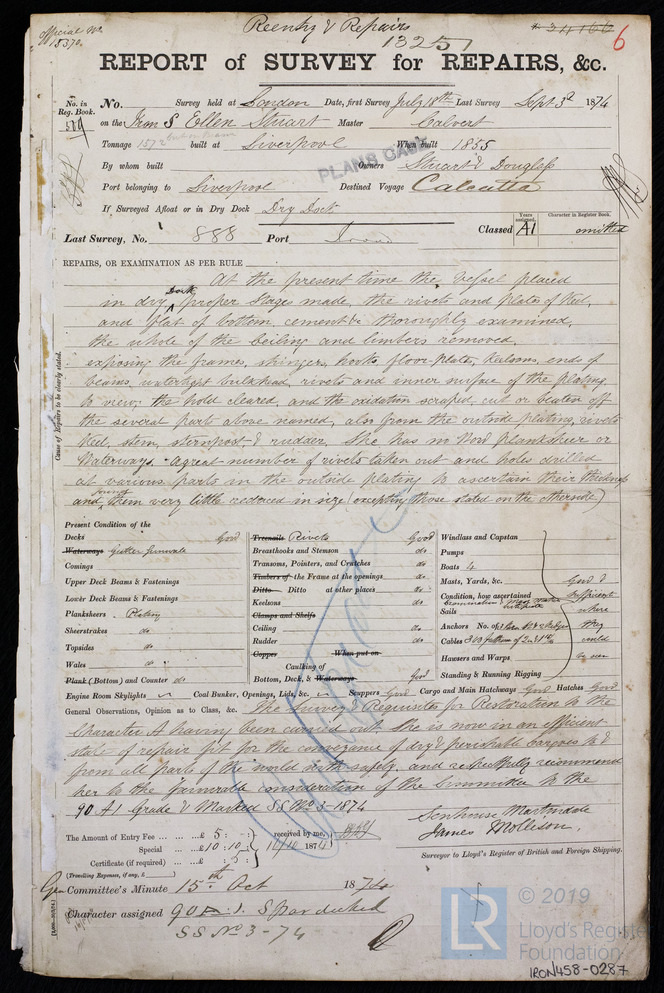 Official No.
18370.
Reentry & Repairs
13251
34166
6
REPORT of SURVEY for REPAIRS, &c.
No. in Reg. Book.
No. Survey held at London Date, first Survey July 18th Last Survey Sept 3d 1874
on the Iron S Ellen Stuart Master Calvert
Tonnage 1572 built at Liverpool When built 1855
PLANS CASE
By whom built Owners Stuart & Douglas
Port belonging to Liverpool Destined Voyage Calcutta
If Surveyed Afloat or in Dry Dock Dry Dock
Last Survey, No. 888 Port Classed Years assigned. A1 Character in Register Book. omitted
REPAIRS, OR EXAMINATION AS PER RULE
At the present time the Vessel placed
in dry Dock, proper stages made, the rivets and plates of Keel,
and flat of bottom, cement &c thoroughly examined,
the whole of the Ceiling and limbers removed,
exposing the frames, stringers, hooks floor-plates, Keelsons, ends of
beams, watertight bulkhead, rivets and inner surface of the plating,
to view; the hold cleared, and the oxidation scraped, cut or beaten off
the several parts above named, also from the outside plating, rivets
Keel, stem, sternpost & rudder, She has no Wood planksheer or
Waterways. A great number of rivets taken out and holes drilled
at various parts in the outside plating to ascertain their thickness
and found them very little reduced in size (excepting those stated on the otherside)
Cause of Repairs to be clearly stated.
Present Condition of the
Decks Good
Waterways Gutter gunwale
Comings
Upper Deck Beams & Fastenings
Lower Deck Beams & Fastenings
Planksheers Plating
Sheerstrakes do
Topsides do
Wales do
Plank (Bottom) and Counter do
Treenails Rivets Good
Breasthooks and Stemson do.
Transoms, Pointers, and Crutches do.
Timbers of the Frame at the openings do.
Ditto Ditto at other places do.
Keelsons do.
Clamps and Shelfs
Ceiling do.
Rudder do.
Copper When put on
Caulking of
Bottom, Deck, & Waterways Good
Windlass and Capstan
Pumps
Boats 4
Masts, Yards, &c. Good &
Condition, how ascertained Sufficient
Sails where
Anchors No. of they
Cables 300 fathom of could
Hawsers and Warps be seen
Standing & Running Rigging
Engine Room Skylights Coal Bunker, Openings, Lids, &c. Scuppers Good Cargo and Main Hatchways Good Hatches Good
General Observations, Opinion as to Class, &c. The Survey & Requisites for Restoration to the
Character A having been carried out she is now in an efficient
state of repair fit for the conveyance of dry & perishable cargoes to &
from all parts of the world with safety, and respectfully recommend
her to the favorable consideration of the Committee to the
90 A1 Grade & Marked SS No 3-1874
Senhouse Martindale
James Mollison,
Surveyor to Lloyd's Register of British and Foreign Shipping.
The Amount of Entry Fee £ 5 : - : received by me,
Special £10 : 10 : 10/10 1874
Certificate (if required) : 5 :
(Travelling Expenses, if any, £ )
Committee's Minute 15th Oct 1874
Character assigned 90 A 1. Spardecked
SS No 3-74
LR
© 2019
Lloyd's Register
Foundation
IRON458-0287